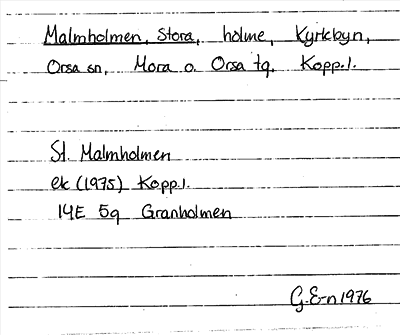 Malmholmen, Stora, holme, Kyrkbyn,
Orsa sn, Mora o. Orsa tg, Kopp.l.
St. Malmholmen
ek (1975) Kopp.l.
14E 5g Granholmen
G.E-n 1976